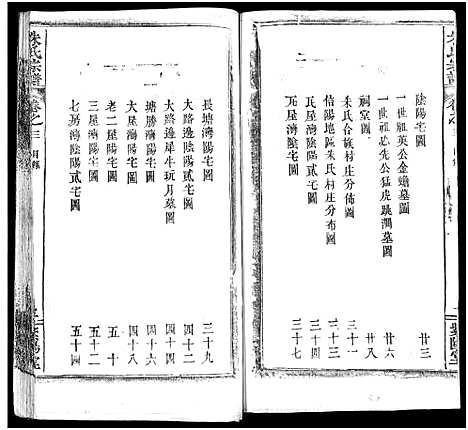 陰陽宅圖
一世祖英公金蟾墓圖 廿三
一世祖必先公猛虎跳澗墓圖 廿六
祠堂圖 廿八
朱氏合族村庄分佈圖 三一
信陽地區朱氏村庄分布圖 三三
瓦屋灣陰陽貳宅圖 三十五
瓦屋灣陰陽貳宅圖 三十七
朱氏宗譜
卷之三
目錄
長塘灣陽宅圖 三十九
大路邊陰陽貳宅圖 四十二
大路邊犀牛玩月墓圖 四十四
塘勝灣陽宅圖 四十六
大屋灣陰陽貳宅圖 四十八
老二屋陽宅圖 五十
三屋灣陽宅圖 五十二
七房灣陰陽貳宅圖 五十四
紫陽堂